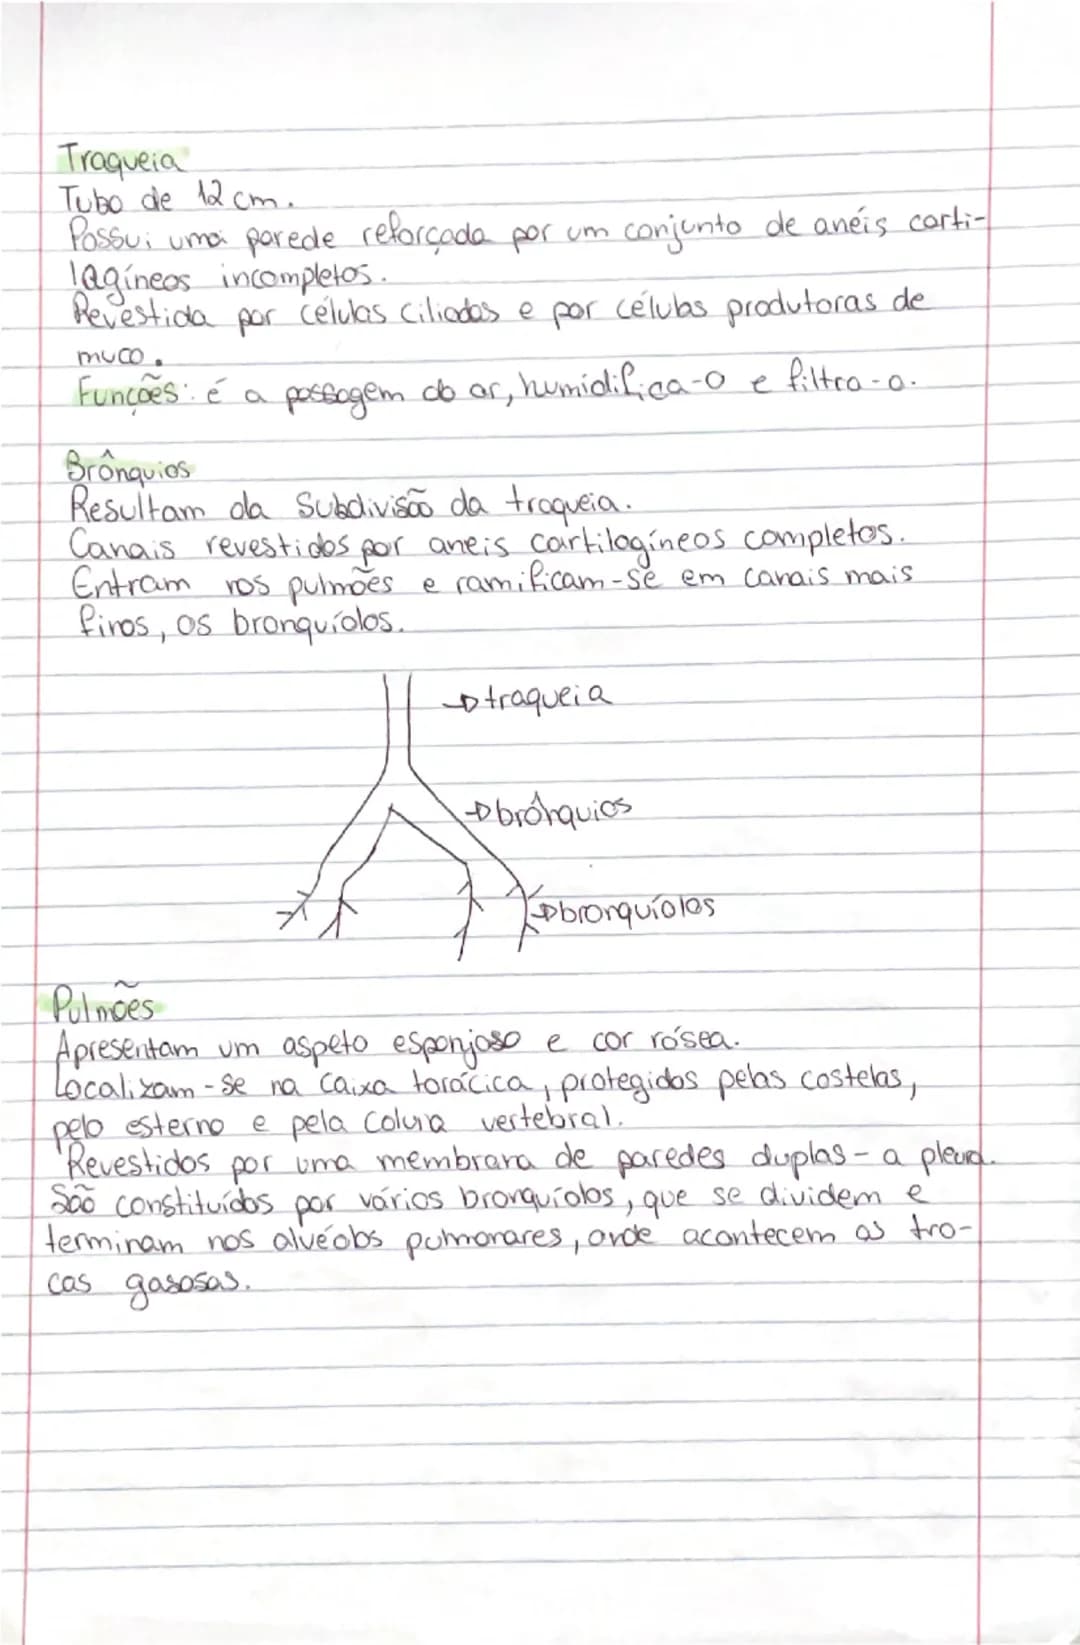 Traqueia
Tubo de 12 cm.
Possui uma parede reforçada por um conjunto de anéis carti-
lagíneos incompletos.
Revestida por células ciliadas e por células produtoras de
muco.
Funções: é a passagem do ar, humidifica-o e filtra-o.
Brônquios
Resultam da Subdivisão da traqueia.
Canais revestidos por aneis cartilagíneos completos.
Entram nos pulmões e ramificam-se em canais mais
finos, os bronquíolos.
→traqueia
→brônquios
→bronquíolos
Pulmões
Apresentam um aspeto esponjoso e cor rósea.
Localizam-se na caixa torácica, protegidos pelas costelas,
pelo esterno e pela coluna vertebral.
Revestidos por uma membrana de paredes duplas - a pleura.
São constituídos por vários bronquíolos, que se dividem e
terminam nos alvéolos pulmonares, onde acontecem as tro-
cas gasosas.